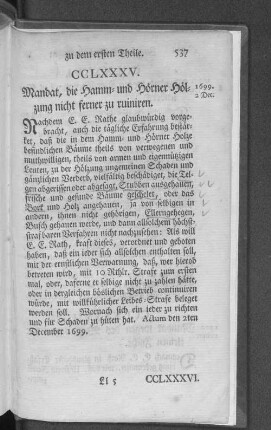 zu dem ersten Theile. 537
CCLXXXV.
Mandat, die Hamm- und Hörner Höl-
zung nicht ferner zu ruiniren.
1699.
2 Dec.
Nachdem E. E. Rathe glaubwürdig vorge-
bracht, auch die tägliche Erfahrung bestär-
ket, daß die in dem Hamm- und Hörner Holze
befindlichen Bäume theils von verwegenen und
muthwilligen, theils von armen und eigennützigen
Leuten, zu der Hölzung ungemeinen Schaden und
gänzlichen Verderb, vielfältig beschädiget, die Tel-
gen abgerissen oder abgesagt, Studden ausgehauen,
frische und gesunde Bäume geschelet, oder das
Bork und Holz angehauen, ja von selbigen in
andern, ihnen nicht gehörigen, Ellerngehegen,
Busch gehauen werde, und dann allsolchem höchst-
strafbaren Verfahren nicht nachzusehen: Als will
E. E. Rath, kraft dieses, verordnet und geboten
haben, daß ein jeder sich allsolchen enthalten soll,
mit der ernstlichen Verwarnung, daß, wer hierob
betreten wird, mit 10 Rthlr. Strafe zum ersten
mal, oder, daferne er selbige nicht zu zahlen hätte,
oder in dergleichen böslichen Betrieb continuiren
würde, mit willkührlicher Leibes-Strafe beleget
werden soll. Wornach sich ein jeder zu richten
und für Schaden zu hüten hat. Actum den 2ten
December 1699.
Ll 5 CCLXXXVI.